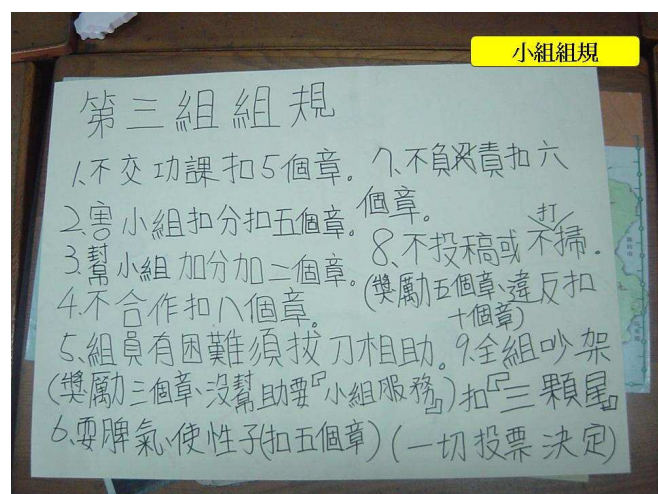 小組組規
第三組組規
1.不交功課扣5個章。
2.害小組扣分扣五個章。
3.幫小組加分加二個章。
4.不合作扣八個章。
5.組員有困難須拔刀相助。
(獎勵三個章、沒幫助要『小組服務』)
6.耍脾氣、使性子(扣五個章)
7.不負責扣六
個章。
8.不投稿或不打掃。
(獎勵五個章、違反扣
十個章)
9.全組吵架
扣『三顆尾』
(一切投票決定)